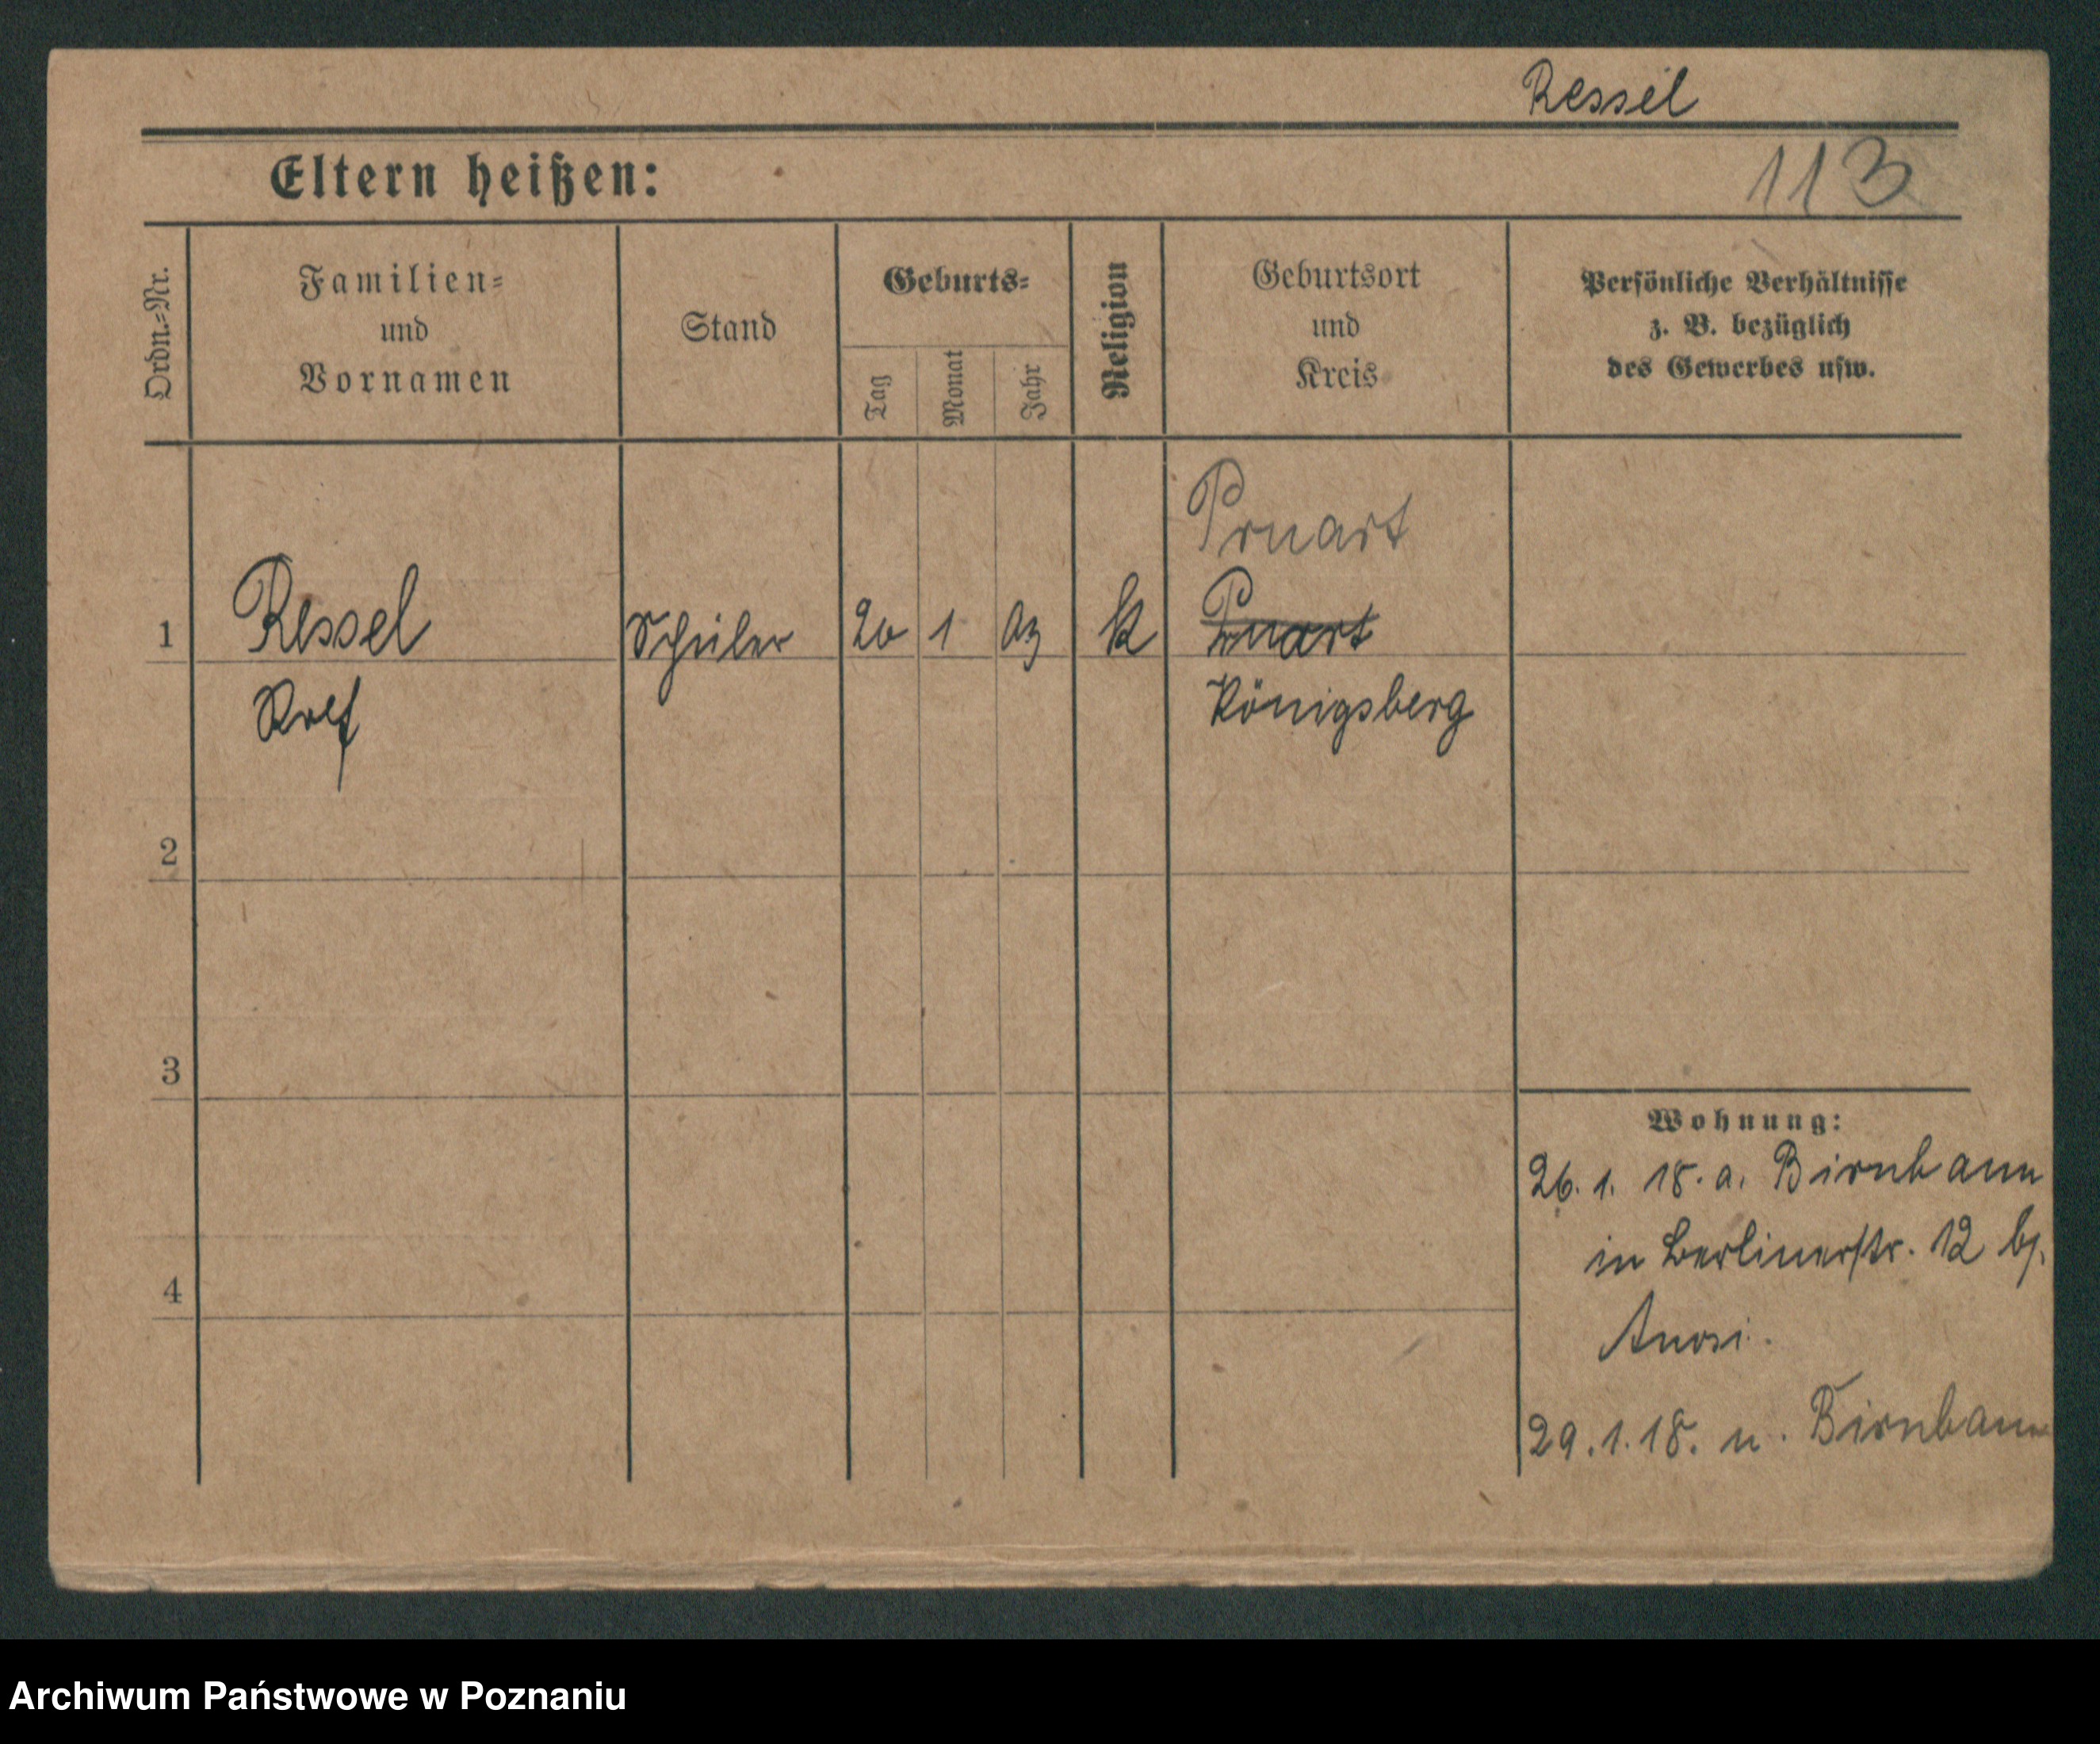 Ressel
Eltern heißen:
113
Ordn.=Nr.
Familien=
und
Vornamen
Stand
Geburts=
Tag
Monat
Jahr
Religion
Geburtsort
und
Kreis
Persönliche Verhältnisse
z. B. bezüglich
des Gewerbes usw.
1
Ressel
Schüler
20
1
03
k
Königsberg
Rolf
2
3
4
Wohnung:
26. 1. 18. a. Birnbaum
in Berlinerstr. 12 bj.
29. 1. 18. n. Birnbaum
Archiwum Państwowe w Poznaniu